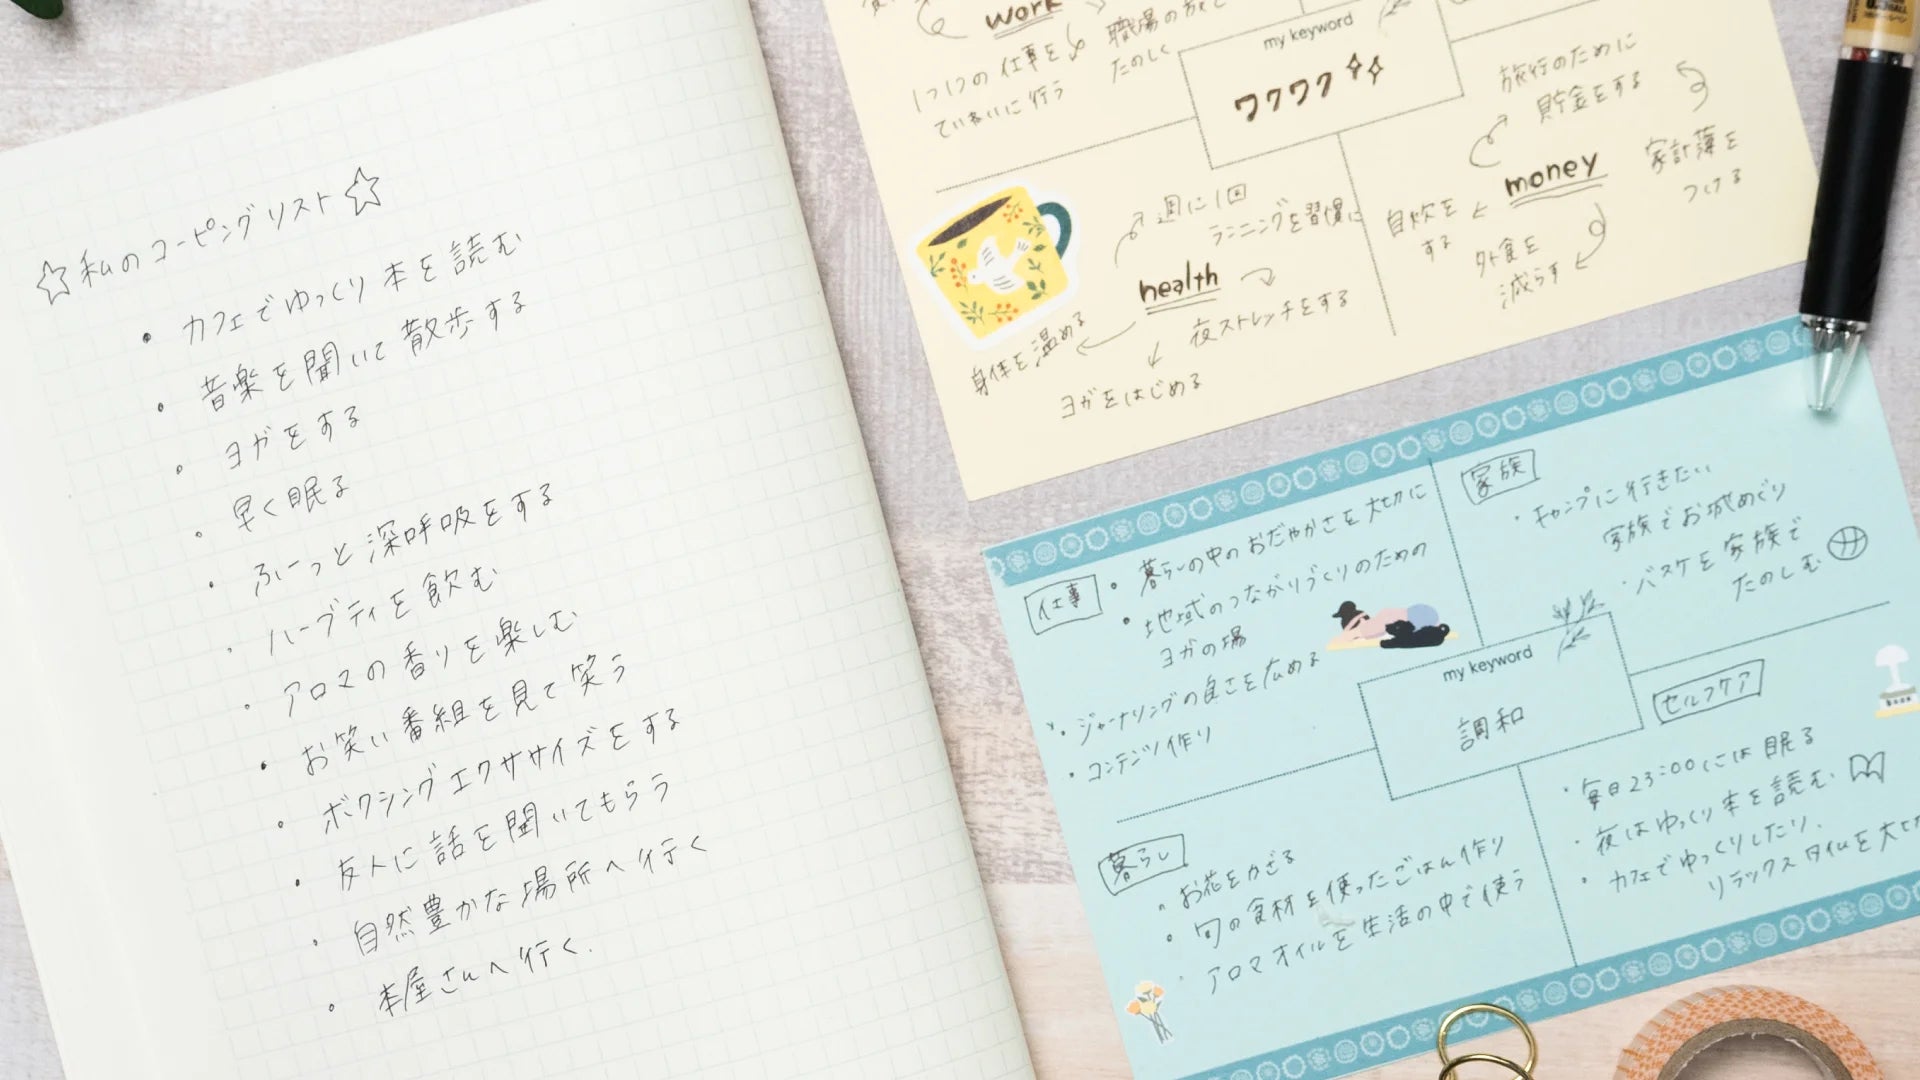 ☆私のコーピングリスト☆
・カフェでゆっくり本を読む
・音楽を聞いて散歩する
・ヨガをする
・早く眠る
・ふーっと深呼吸をする
・ハーブティを飲む
・アロマの香りを楽しむ
・お笑い番組を見て笑う
・ボクシングエクササイズをする
・友人に話を聞いてもらう
・自然豊かな場所へ行く
・本屋さんへ行く.
work
1つ1つの仕事を
ていねいに行う
職場の方と
たのしく
my keyword
ワクワク
旅行のために
貯金をする
money
家計簿を
つける
自炊を
する
外食を
減らす
週に1回
ランニングを習慣に
health
身体を温める
夜ストレッチをする
ヨガをはじめる
仕事
・暮らしの中のおだやかさを大切に
・地域のつながりづくりのための
ヨガの場
・ジャーナリングの良さを広める
・コンテンツ作り
家族
・キャンプに行きたい
家族でお城めぐり
・バスケを家族で
たのしむ
my keyword
調和
暮らし
・お花をかざる
・旬の食材を使ったごはん作り
・アロマオイルを生活の中で使う
セルフケア
・毎日23:00には眠る
・夜はゆっくり本を読む
・カフェでゆっくりしたり、
リラックスタイムを大切